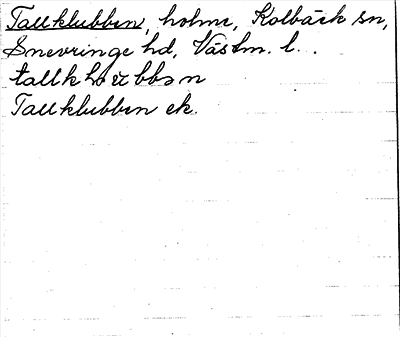 Tallklubben, holme, Kolbäck sn,
Snevringe hd, Västm. l.
Tallklubben ek.